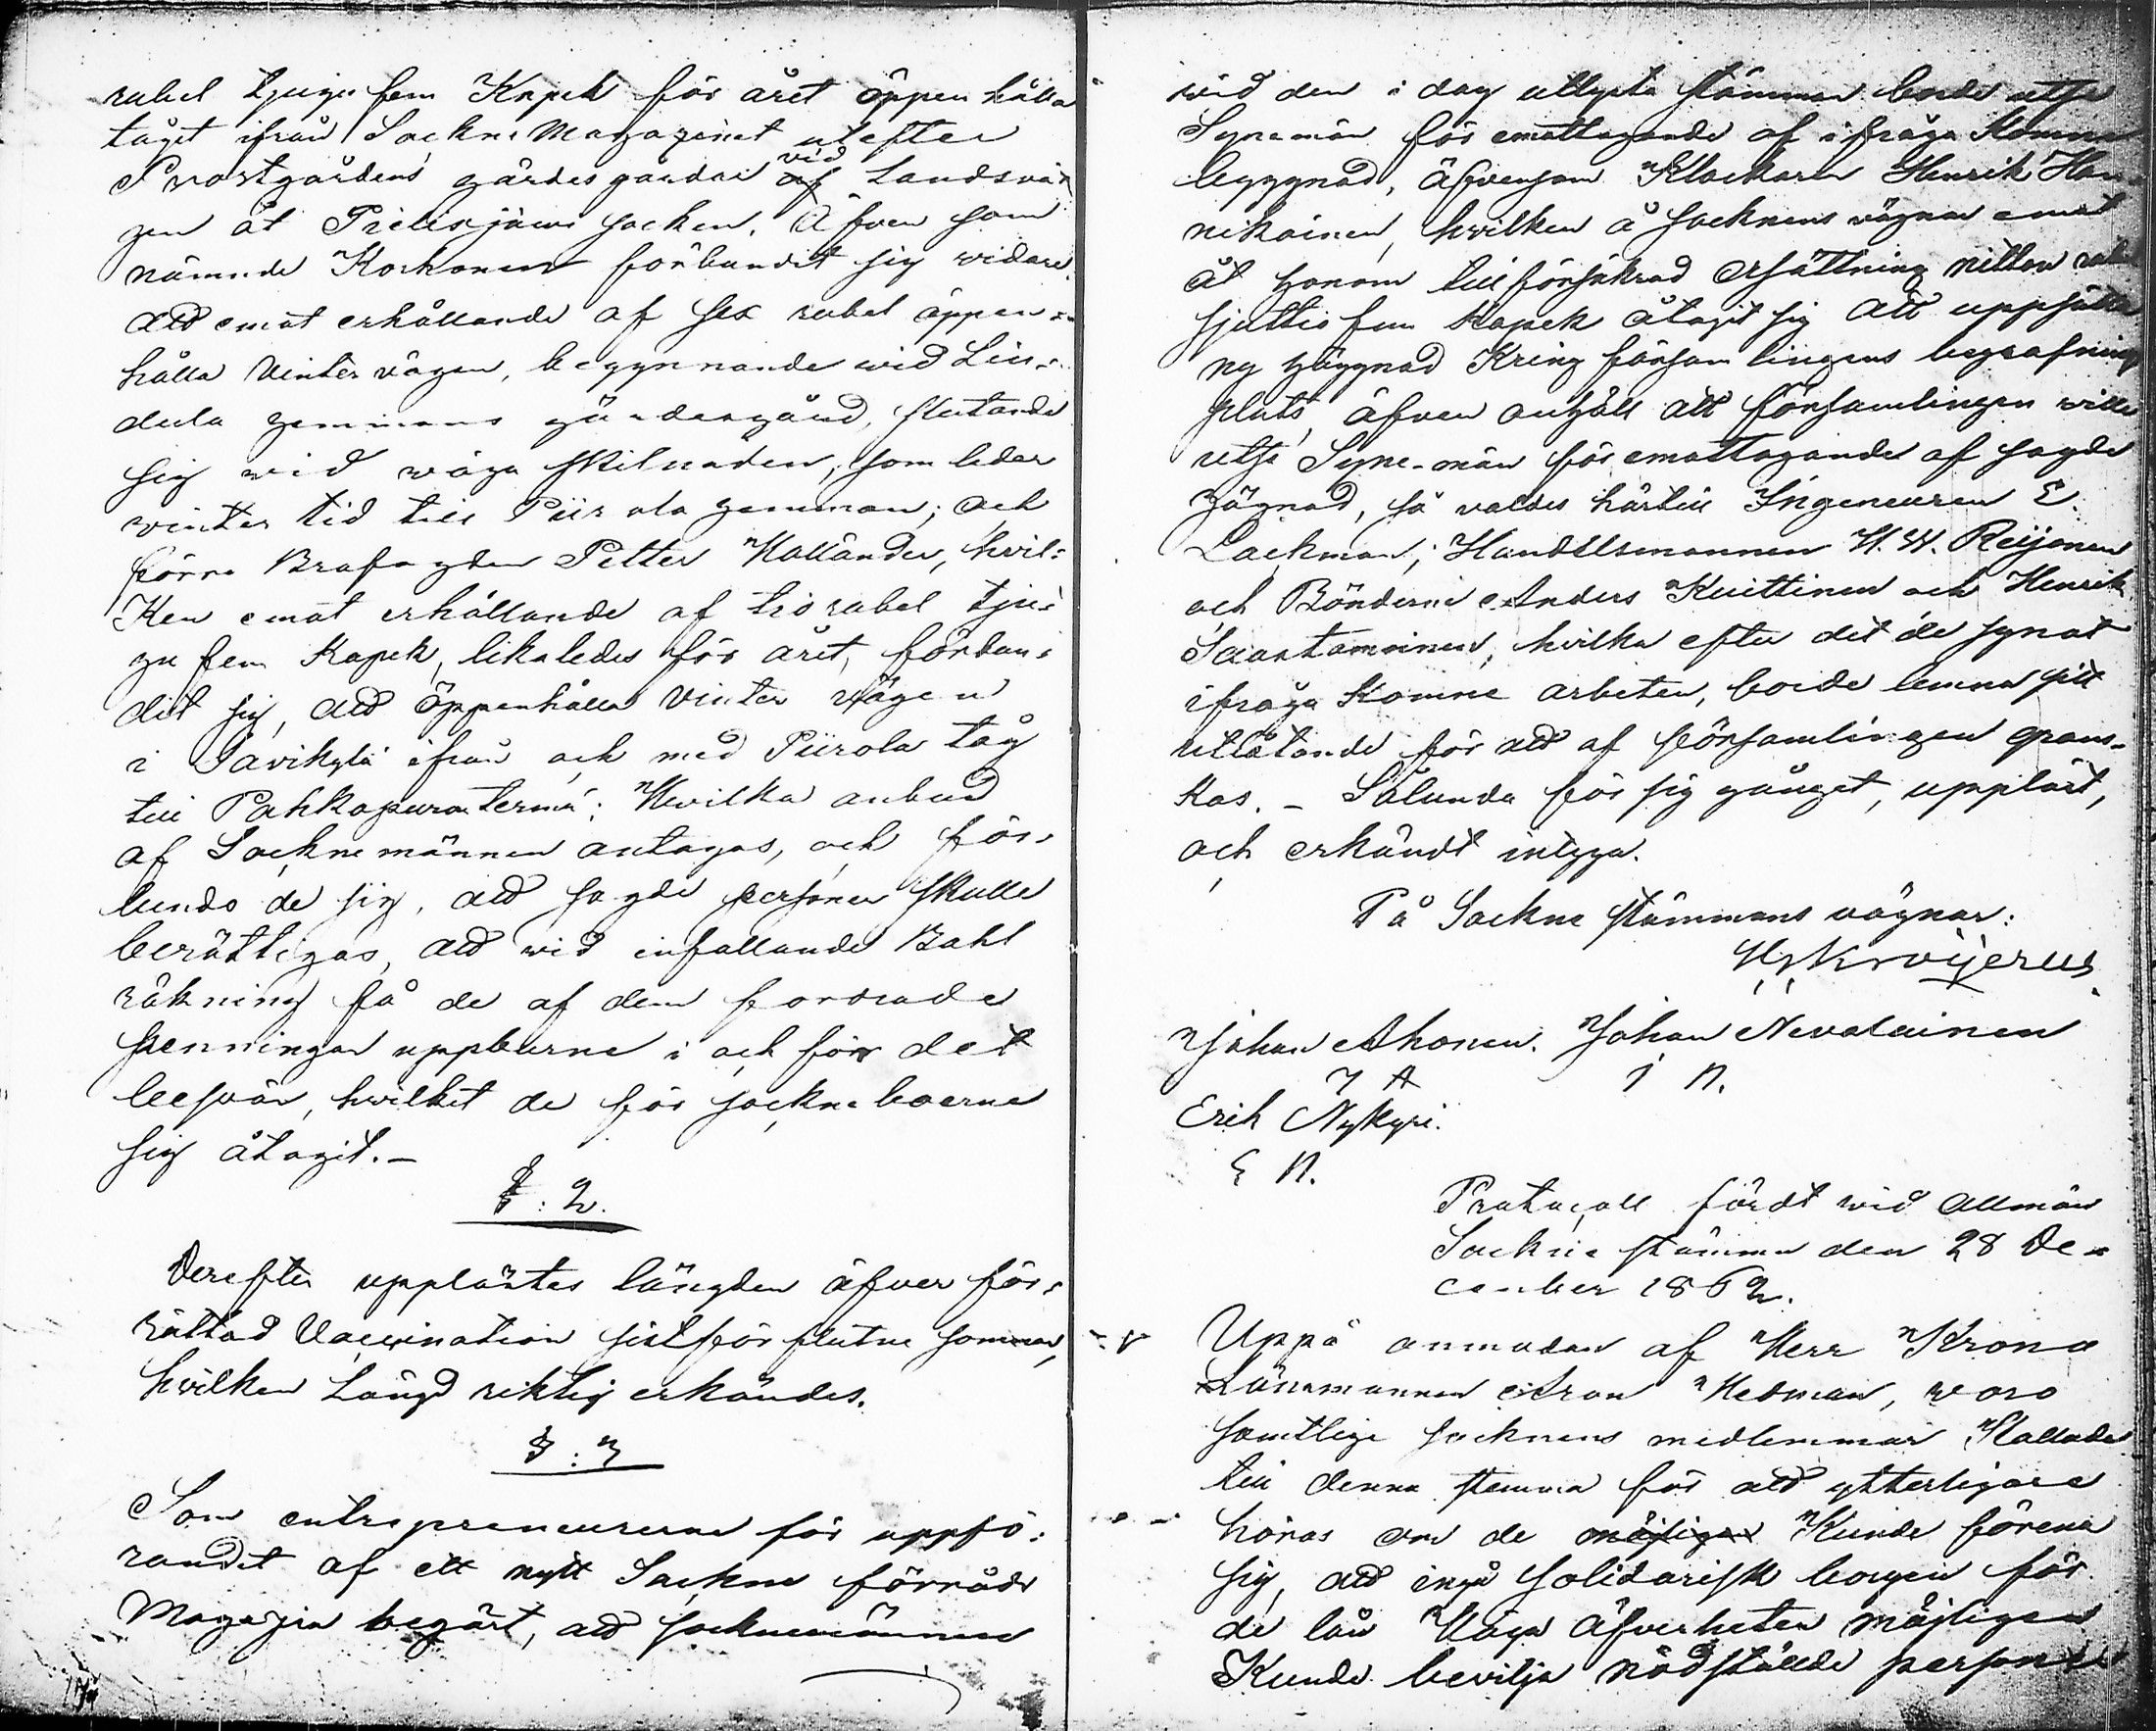 rubel tjugu fem Kopek för året öppen hålla
tåget ifrån Sockne Magazinet utefter
Prostgårdens gärdesgårdar vid Landsvä-
gen åt Pielisjärvi socken. Äfven som
nämnde Korhonen förbundit sig vidare
att emot erhållande af sex rubel öppen
hålla Vinter vägen, begynnande wid Lin-
dula hemmans gärdesgård, slutande
sig wid wäga skilnaden, som leder
vinter tid till Piirola hemman; och
förre Brofogden Petter Kollander, hvil-
Ken emot erhållande af tio rubel tju-
gu fem Kopek, likaledes för året, förbun-
dit sig, att öppenhålla Vinter vägen
i Savikylä ifrån och med Piirola tåg
till Pahkapuro termä: Hvilka anbud
af Socknemännen antagas, och för-
bundo de sig, att sagde personer skulle
berättigas, att wid infallande Bahl
räkning få de af dem fordrade
penningar uppburne i och för det
besvär, hvilket de för sockneboerne
sig åtagit.-
§: 2.
Derefter upplästes längden äfver för-
rättad Vaccination sistförflutne sommar,
hvilken Längd riktig erkändes.
§: 3
Som entrepreneurerne för uppfö-
randet af ett nytt Sockne förråds
Magazin begärt, att socknemännen
wid den i dag utlyste stämman borde utse
Synemän för emottagande af ifråga Komne
byggnad, äfvensom Klockaren Henrik Han-
nikainen, hvilken å socknens vägnar emot
åt honom tillförsäkrad ersättning nitton rubel
sjuttio fem Kopek åtagit sig att uppsätta
ny hägnad Kring församlingens begrafnings
plats, äfven anhåll att församlingen wille
utse Syne-män för emottagande af sagde
hägnad, så valdes härtill Ingeneuren E.
Lackman, Handelsmannen H. W. Reijonen
och Bönderne Anders Kuittinen och Henrik
Saastamoinen, hvilka efter det de synat
ifråga Komne arbeten, borde lemna sitt
utlåtande för att af församlingen grans-
kas. - Sålunda för sig gånget, uppläst,
och erkändt intyga.
På Sockne stämmans vägnar:
Johan Ahonen. Johan Nevalainen
J A J N.
Erik Nykyri.
E N.
Protocoll fördt wid allmän
Sockne stämma den 28 De-
cember 1862.
Uppå anmodan af Herr Krono
Länsmannen Aron Hedman, woro
samtlige socknens medlemmar Kallade
till denna stemma för att ytterligare
höras om de möjligen Kunde förena
sig, att ingå solidarisk borgen för
de lån Höga Öfverheten möjligen
Kunde bevilja nödställde personer